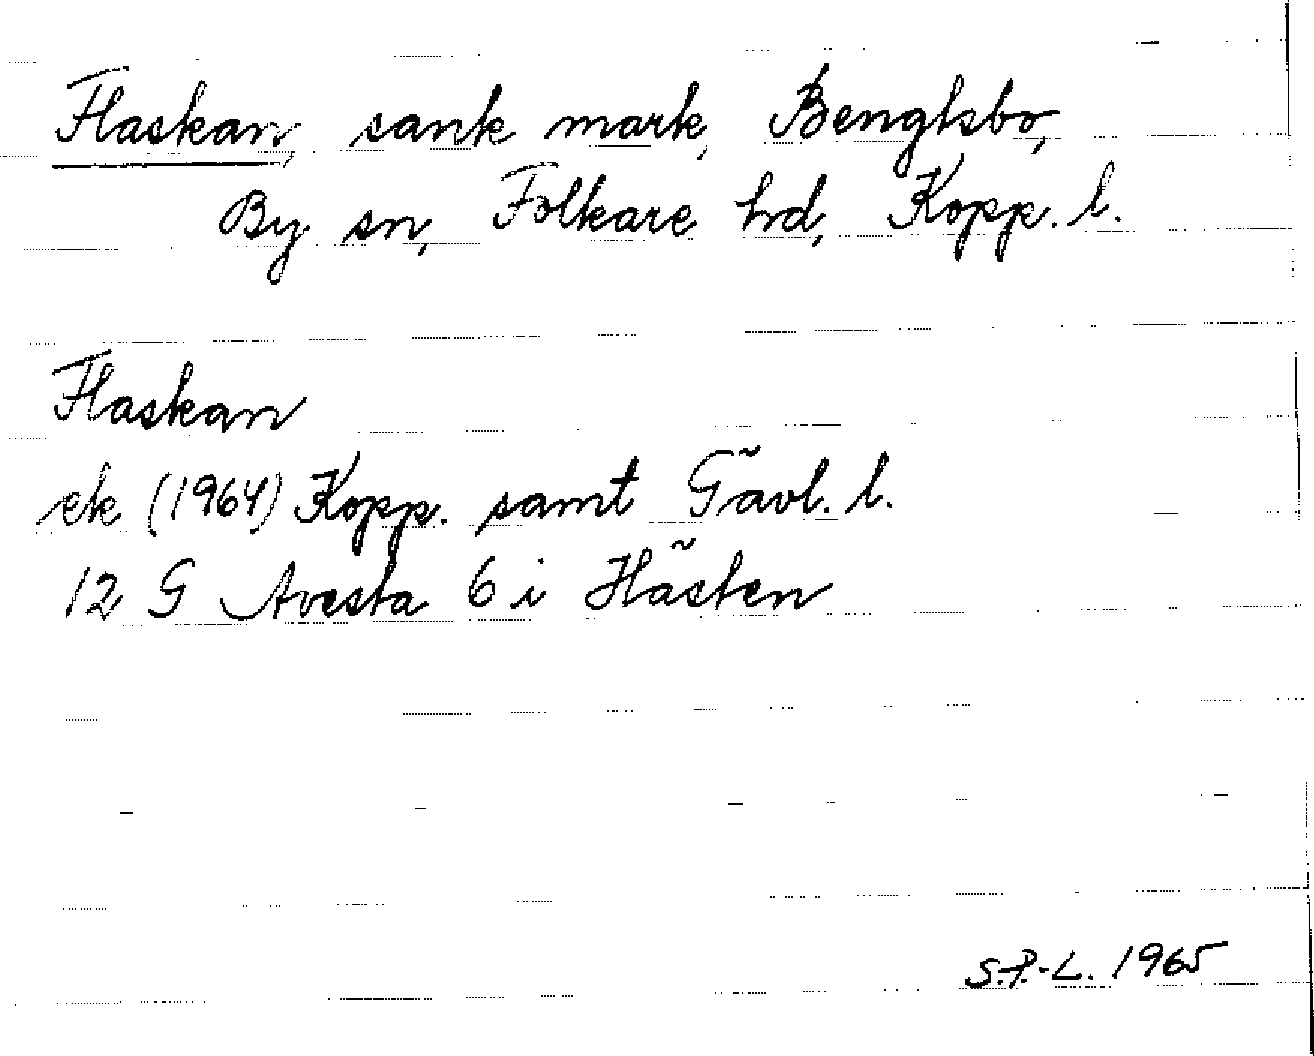 Flaskan, sank mark, Bengtsbo,
By sn, Folkare hd, Kopp. l.
Flaskan
ek (1964) Kopp. samt Gävl. l.
12 G Avesta 6 i Hästen
S.P.-L. 1965